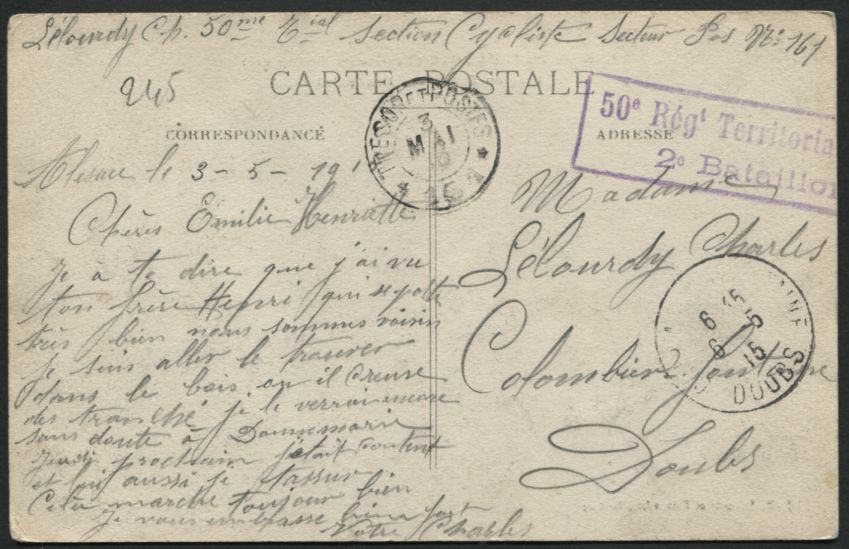 Lélourdy Ch. 50me Tial Section Cycliste Secteur Pos No: 161
245
CARTE POSTALE
TRESOR ET POSTES
3
MAI
* 161 *
50e Régt Territoria
2e Bataillon
CORRESPONDANCE
ADRESSE
Alsace le 3-5-191
Chères Emilie Henriette
Je à te dire que j'ai vu
ton frère Henri qui se porte
très bien nous sommes voisin
je suis aller le trouver
dans le bois ou il creuse
des tranché je le verrai encore
sans doute à Dannemarie
jeudi prochain j'était content
et lui aussi je t'assur
Cela marche toujour bien
Je vous embrasse bien fort
Votre Charles
Madame
Lélourdy Charles
Colombier fontaine
Doubs
6
6
15
DOUBS